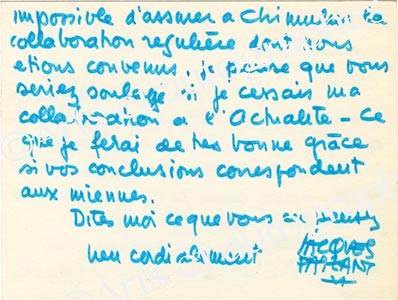 impossible d'assurer a Chimulus la
collaboration regulière dont nous
etions convenus, je pense que vous
seriez soulagé si je cessais ma
collaboration a l'Actualité - ce
que je ferai de tres bonne grâce
si vos conclusions correspondent
aux miennes.
Dites moi ce que vous en pensez
bien cordialement
JACQUES
FAIZANT